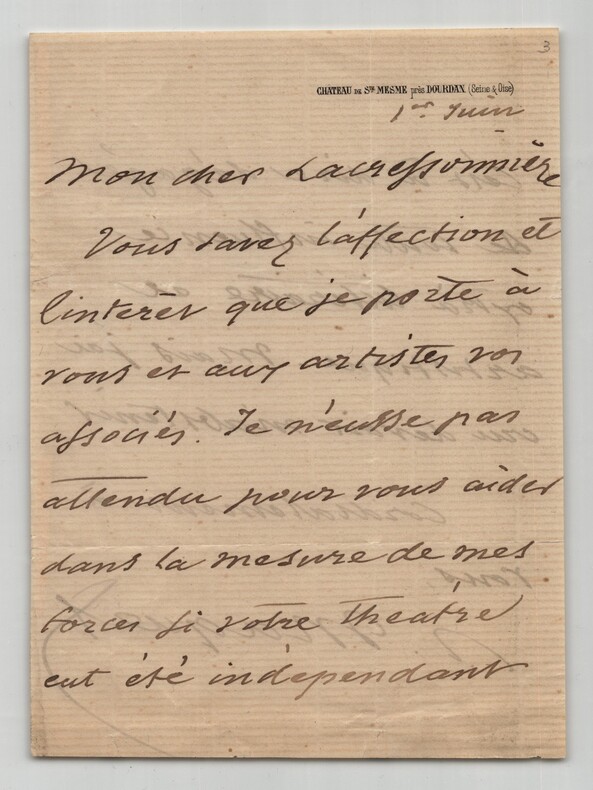 3
CHÂTEAU DE STE MESME près DOURDAN. (Seine & Oise)
1er Juin
Mon cher Lacressonnière
Vous savez l'affection et
l'interêt que je porte à
vous et aux artistes vos
associés. Je n'eusse pas
attendu pour vous aider
dans la mesure de mes
forces si votre théatre
eut été indépendant